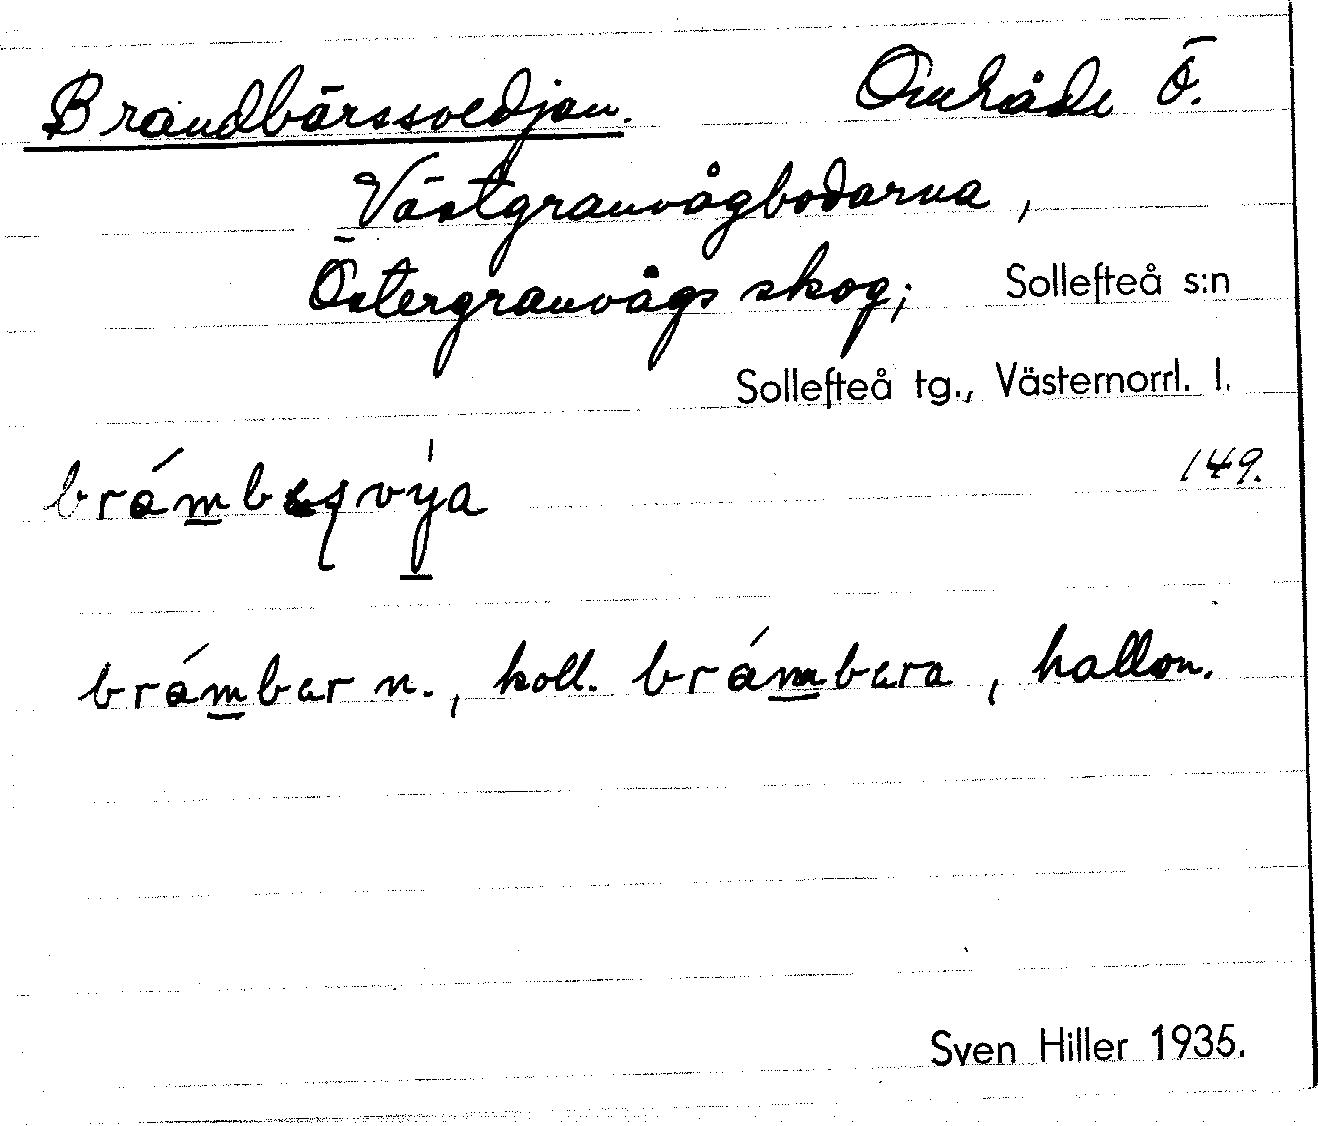 Brandbärssvedjan. Område Ö.
Västgranvågbodarna,
Östergranvågs skog; Sollefteå s:n
Sollefteå tg., Västernorrl. l.
149.
brámbar n., koll. brámbara, hallon.
Sven Hiller 1935.